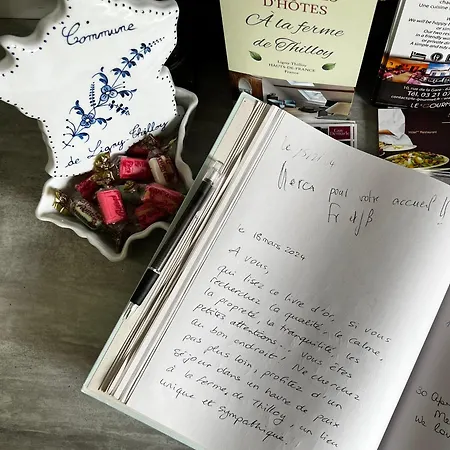 Commune
de Ligny Thilloy
D'HÔTES
A la ferme
de Thilloy
Ligny-Thilloy
HAUTS DE FRANCE
France
Merci pour votre accueil !!
le 18 mars 2024
A vous,
qui lisez ce livre d'or, si vous
recherchez la qualité, le calme,
la propreté, la tranquillité, les
petites attentions... Vous êtes
au bon endroit ! Ne cherchez
pas plus loin, profitez d'un
séjour dans un havre de paix
à la ferme de Thilloy, un lieu
unique et sympathique.
We will be happy
LE GOURM
Restaurant
so
Ma
we lo